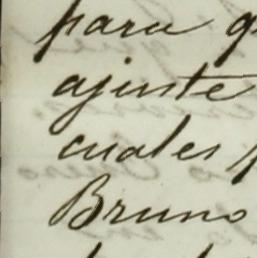 para
ajuste
cuales
Bruno